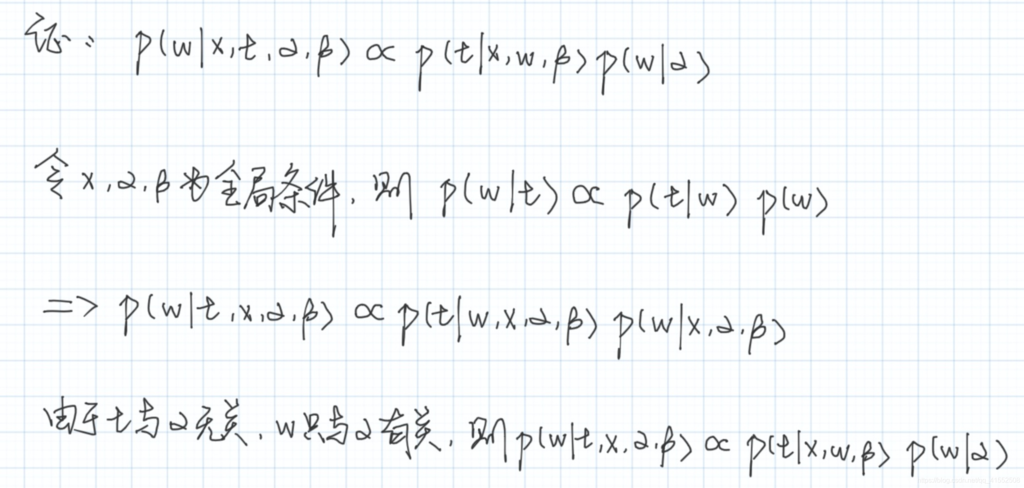 证： p(w|x,t,α,β) ∝ p(t|x,w,β) p(w|α)
令 x,α,β 为全局条件, 则 p(w|t) ∝ p(t|w) p(w)
=> p(w|t,x,α,β) ∝ p(t|w,x,α,β) p(w|x,α,β)
由于 t 与 α 无关, w 只与 α 有关, 则 p(w|t,x,α,β) ∝ p(t|x,w,β) p(w|α)